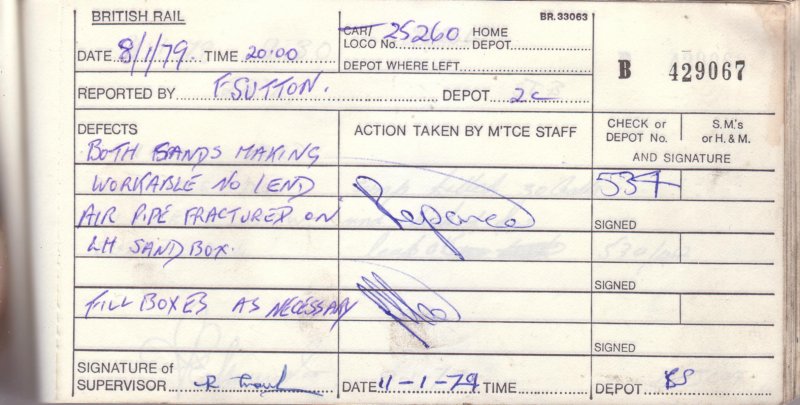 BRITISH RAIL
BR.33063
CAR/ 25260 HOME
LOCO No. DEPOT
DATE 8/1/79. TIME 20:00
DEPOT WHERE LEFT
B 429067
REPORTED BY F SUTTON. DEPOT 2C
DEFECTS
ACTION TAKEN BY M'TCE STAFF
CHECK or S.M.'s
DEPOT No. or H. & M.
AND SIGNATURE
BOTH SANDS MAKING
WORKABLE NO 1 END
534
AIR PIPE FRACTURED ON
SIGNED
LH SANDBOX.
SIGNED
FILL BOXES AS NECESSARY
SIGNED
SIGNATURE of
SUPERVISOR
DATE 11-1-79 TIME
DEPOT BS